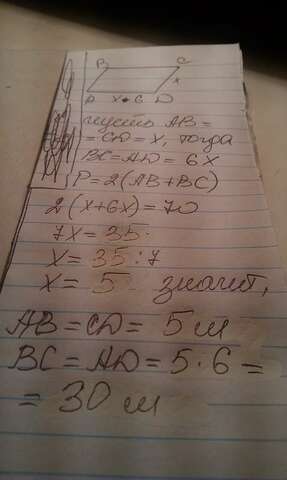 B C
x
A x·6 D
пусть AB =
= CD = x, тогда
BC = AD = 6x
P = 2(AB + BC)
2(x + 6x) = 70
7x = 35
x = 35 : 7
x = 5 значит,
AB = CD = 5 м
BC = AD = 5 · 6 =
= 30 м